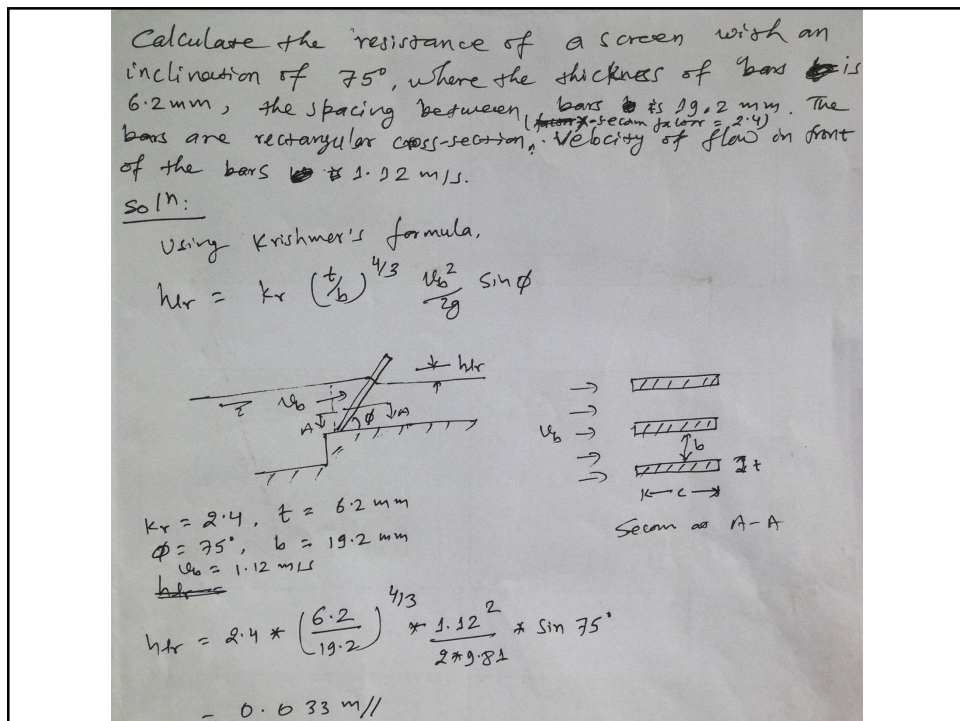 Calculate the resistance of a screen with an
inclination of 75°, where the thickness of bars is
6.2 mm, the spacing between bars is 19.2 mm. The
(secom factor = 2.4)
bars are rectangular cross-section. Velocity of flow in front
of the bars is 1.12 m/s.
Soln:
Using Krishmer's formula,
hlr = kr (t/b)^4/3 vb²/2g sin φ
hlr
vb
A
φ
A
vb
b
t
c
Secom as A-A
kr = 2.4, t = 6.2 mm
φ = 75°, b = 19.2 mm
vb = 1.12 m/s
hlr = 2.4 * (6.2/19.2)^4/3 * 1.12²/2*9.81 * sin 75°
= 0.033 m//